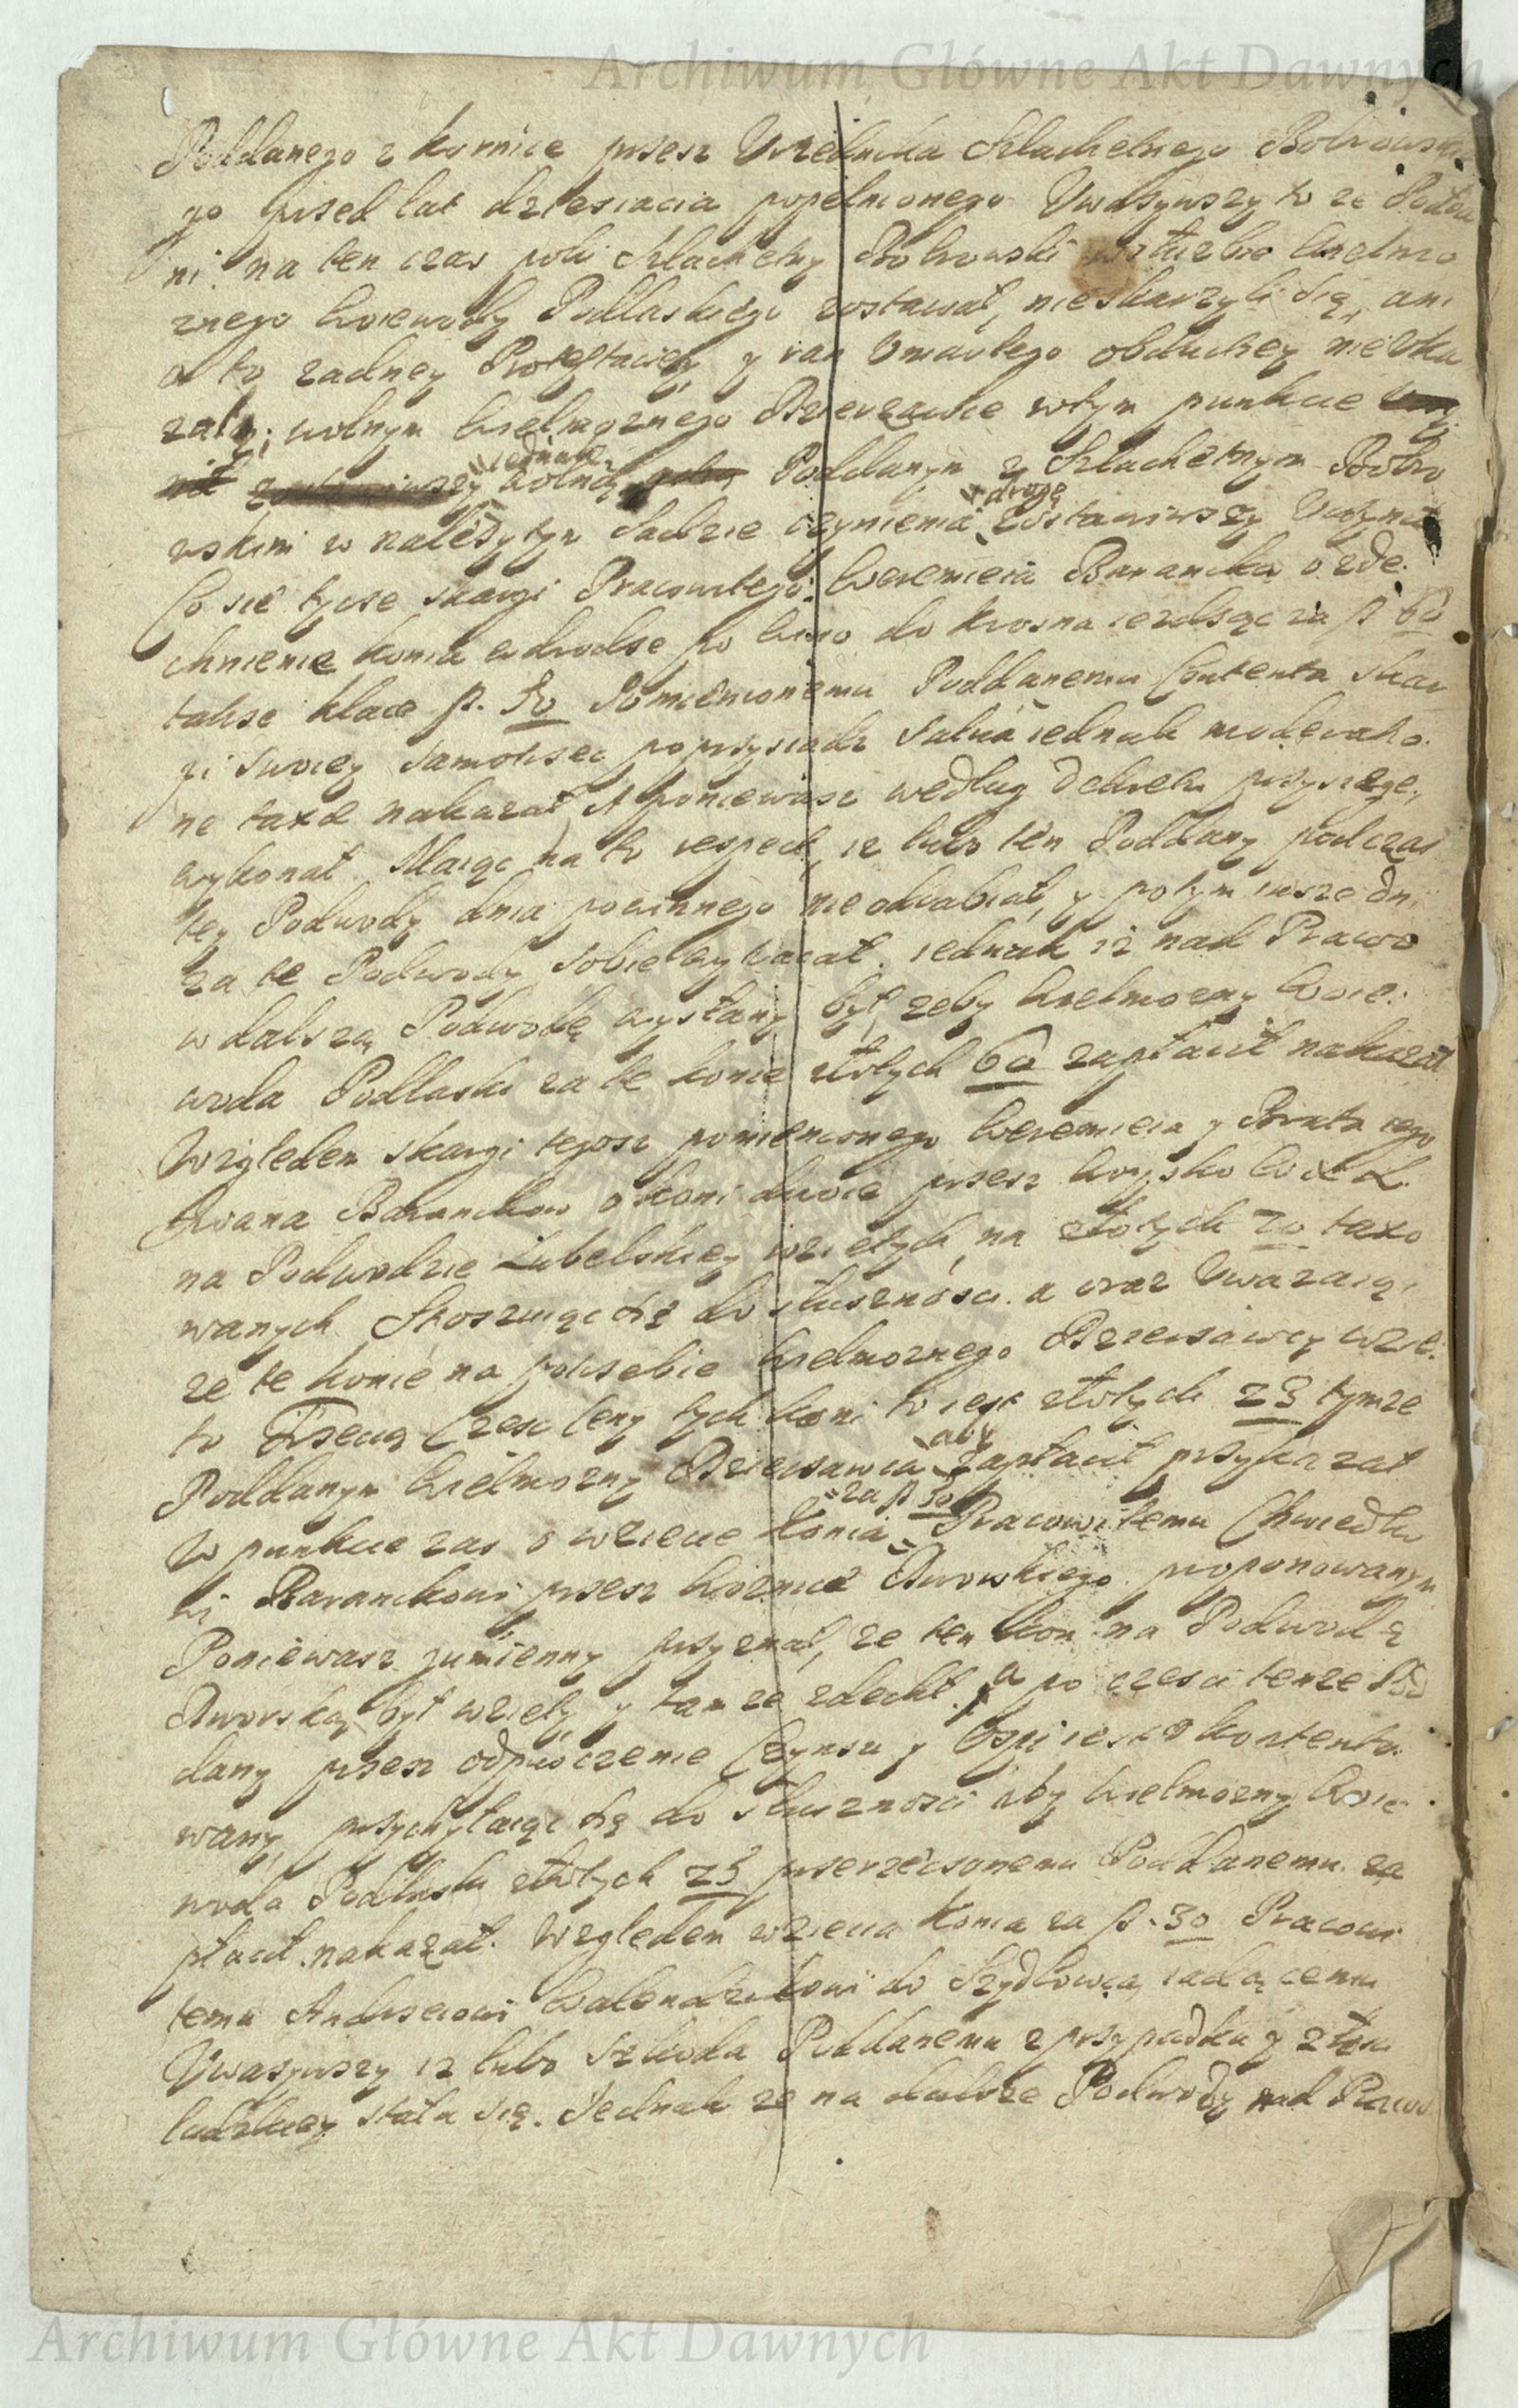 Archiwum Główne Akt Dawnych
Poddanego z Kornice przesz Urzednika Szlachetnego Bobrowskie
go przed lat dziesiacia popelnionego Uwazywszy to ze Podda
ni na ten czas poki Szlachetny Bobrowski w słuzbie Wielmo
znego Woiewody Podlaskiego zostawał, nie skarzyli się, ani
o to zadney Protestacięy y ran Umarłego obdukcyey nie oka
zali, wolnym Wielmoznego Dzierzawce w tym punkcie
iednak wolną Poddanym z Szlachetnym Bobro
wskim w nalezytym Sądzie czynienia drogę zostawiwszy Uczynił
Co sie tycze skargi Pracowitego Weremieia Baranka o zde
chnienie konia w drodze po Wino do Krosna iezdząc za fl 60
takze klacz fl. 50 Pomienionemu Poddanemu Contenta skar
gi swoiey samotrzec poprzysiadz salua iednak moderatio
ne taxæ nakazał, A poniewasz według Dekretu przysiege
wykonał. Maiąc na to respect, iz lubo ten Poddany podczas
tey Podwody dnia powinnego nie odrabiał, y potym insze dni
za te Podwody sobie wytrącał. iednak iz nad Prawo
w dalszą Podwodę wysłany był, zeby Wielmozny Woie
woda Podlaski za te konie złotych 60 zapłacił nakazał
Wzgledem skargi tegosz pomienionego Weremieia y Brata iego
Iwana Barankow o koni dwoie przesz Woysko W X L
na Podwodzie Lubelskiey wzietych, na złotych 70 taxo
wanych. Stosuiąc się do słusznosci. a oraz Uwazaiąc
ze te konie na potrzebie Wielmoznego Dzierzawcy wzie
to Trzecią Częsc Ceny tych koni to iest złotych 23 tymze
Poddanym Wielmozny Dzierzawca aby zapłacił przykazał
W punkcie zas o wziecie konia za fl 50 Pracowitemu Chwiedko
wi Barankowi przesz Woznice Dworskiego proponowanym
Poniewasz sumienny przyznał, ze ten kon na Podwodę
Dworską był wziety y tamze zdechł. a po czesci tenze Pod
dany przesz odpuszczenie Czynszu y Ospi iest kontento
wany, przychylaiąc się do słusznosci aby Wielmozny Woie
woda Podlaski złotych 25 przerzeczonemu Poddanemu za
płacił nakazał. Wzgledem wziecia Konia za fl. 30 Pracowi
temu Andrzeiowi do Szydłowca iadącemu
Uwazywszy iz lubo szkoda Poddanemu z przypadku y
ludzkiey stała się. Jednak ze na dalsze Podwody nad Prawo
Archiwum Główne Akt Dawnych